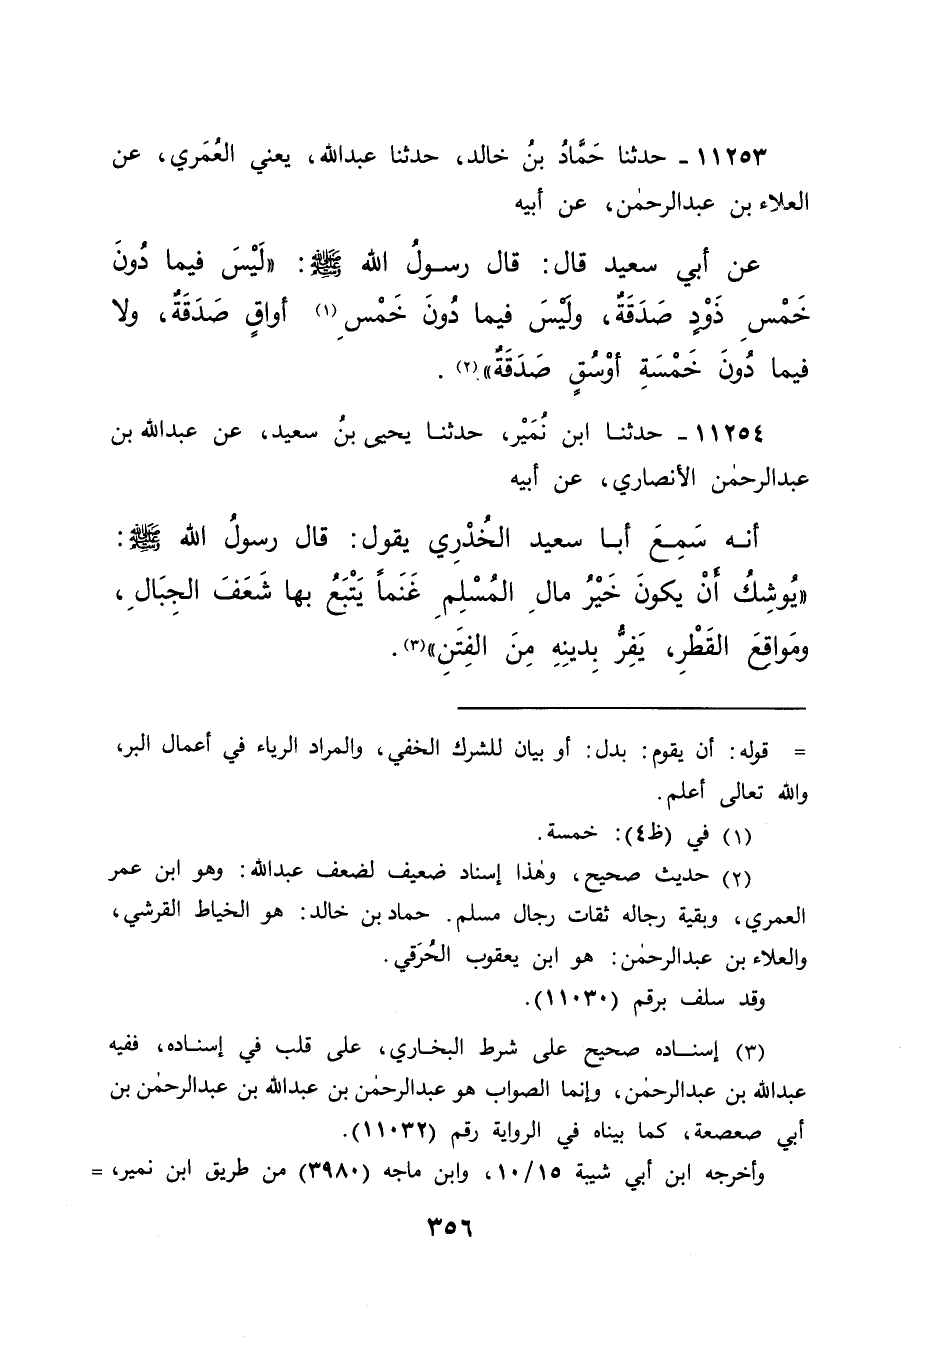 ١١٢٥٣ - حدثنا حَمَّادُ بنُ خالد، حدثنا عبدالله، يعني العُمَري، عن
العلاء بن عبدالرحمٰن، عن أبيه
عن أبي سعيد قال: قال رسولُ الله ﷺ: «لَيْسَ فيما دُونَ
خَمْسِ ذَوْدٍ صَدَقَةٌ، ولَيْسَ فيما دُونَ خَمْسِ(١) أواقٍ صَدَقَةٌ، ولا
فيما دُونَ خَمْسَةِ أوْسُقٍ صَدَقَةٌ»(٢).
١١٢٥٤ - حدثنا ابن نُمَيْر، حدثنا يحيى بنُ سعيد، عن عبدالله بن
عبدالرحمٰن الأنصاري، عن أبيه
أنه سَمِعَ أبا سعيد الخُدْرِي يقول: قال رسولُ الله ﷺ:
«يُوشِكُ أَنْ يكونَ خَيْرُ مالِ المُسْلِمِ غَنَماً يَتْبَعُ بها شَعَفَ الجِبَالِ،
ومَواقِعَ القَطْرِ، يَفِرُّ بِدينِهِ مِنَ الفِتَنِ»(٣).
= قوله: أن يقوم: بدل: أو بيان للشرك الخفي، والمراد الرياء في أعمال البر،
والله تعالى أعلم.
(١) في (ظ٤): خمسة.
(٢) حديث صحيح، وهٰذا إسناد ضعيف لضعف عبدالله: وهو ابن عمر
العمري، وبقية رجاله ثقات رجال مسلم. حماد بن خالد: هو الخياط القرشي،
والعلاء بن عبدالرحمٰن: هو ابن يعقوب الحُرَقي.
وقد سلف برقم (١١٠٣٠).
(٣) إسناده صحيح على شرط البخاري، على قلب في إسناده، ففيه
عبدالله بن عبدالرحمٰن، وإنما الصواب هو عبدالرحمٰن بن عبدالله بن عبدالرحمٰن بن
أبي صعصعة، كما بيناه في الرواية رقم (١١٠٣٢).
وأخرجه ابن أبي شيبة ١٠/١٥، وابن ماجه (٣٩٨٠) من طريق ابن نمير، =
٣٥٦